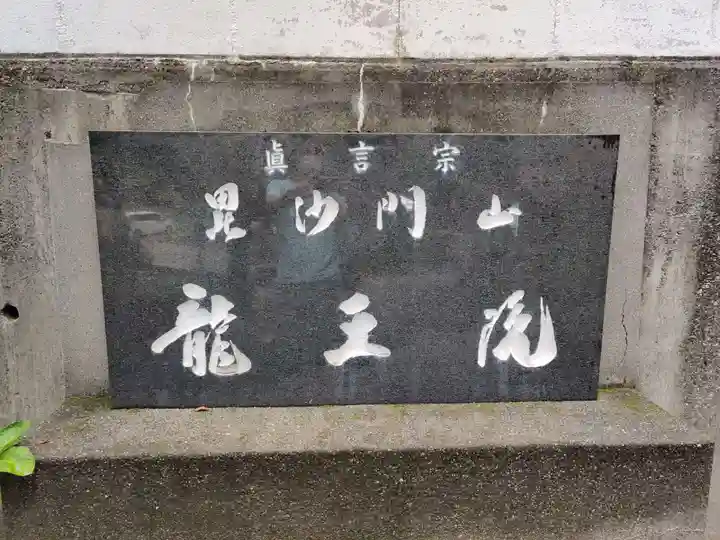 眞言宗
毘沙門山
龍王院